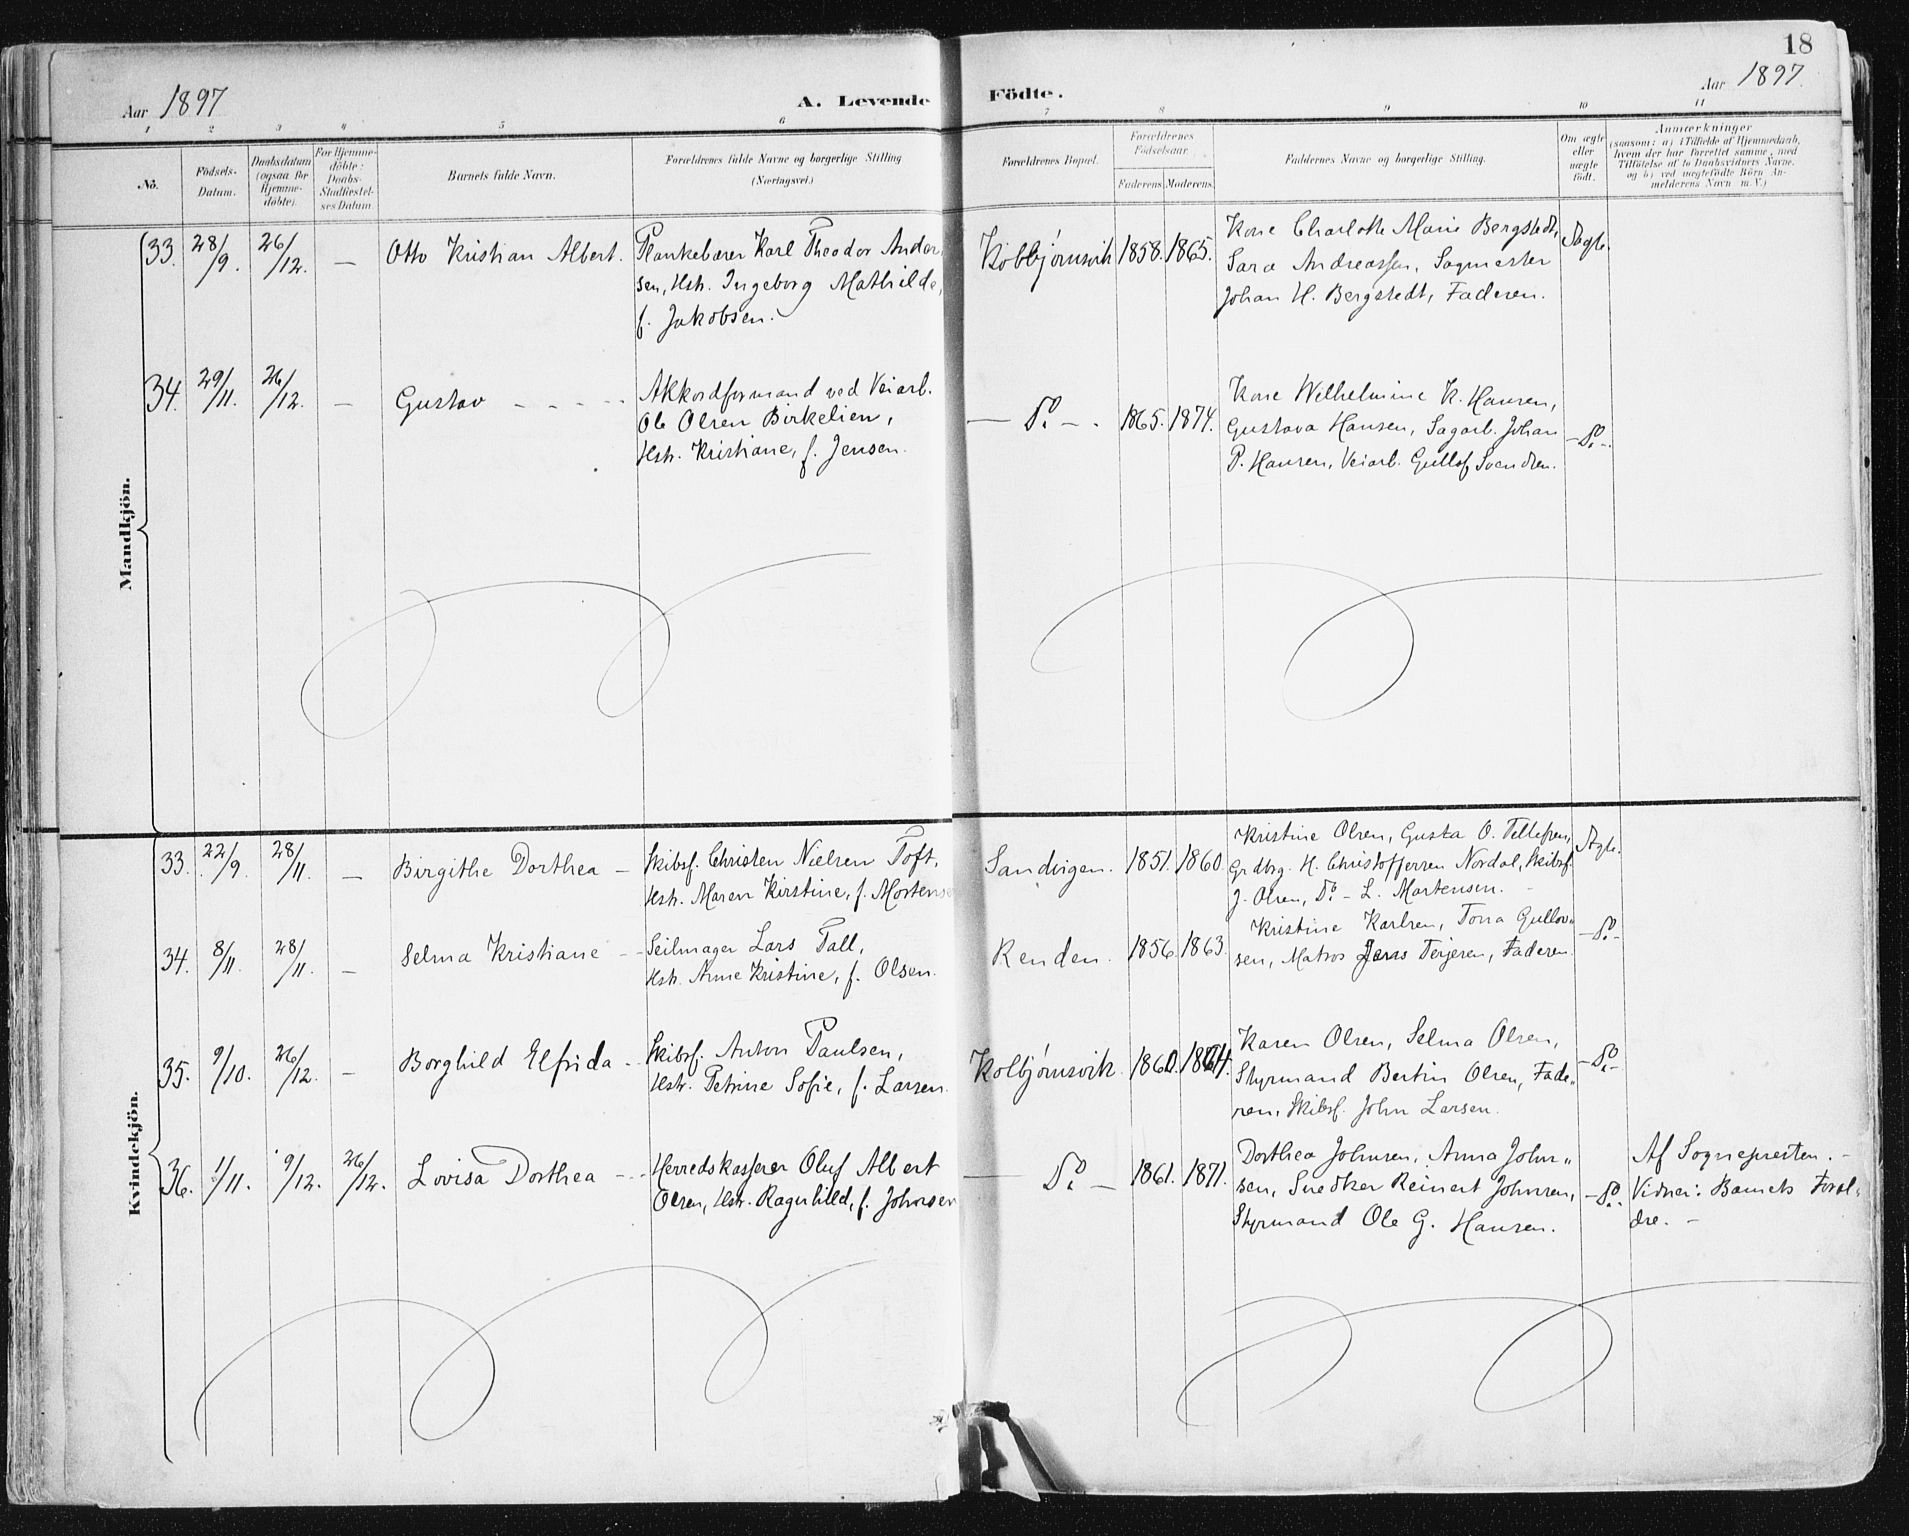 18
Aar 1897
A. Levende Födte.
Aar 1897.
1 2 3 4 5 6 7 8 9 10 11
No.
Födsels-
Datum.
Daabsdatum
(ogsaa for
Hjemme-
döbte).
For Hjemme-
döbte:
Daabs-
Stadfæstel-
ses Datum.
Barnets fulde Navn.
Forældrenes fulde Navne og borgerlige Stilling
(Næringsvei.)
Forældrenes Bopæl.
Forældrenes
Födselsaar.
Faderens. Moderens.
Faddernes Navne og borgerlige Stilling.
Om ægte
eller
uægte
födt.
Anmærkninger
(saasom: a) i Tilfælde af Hjemmedaab,
hvem der har forrettet samme, med
Tilföielse af to Daabsvidners Navne.
og b) ved uægtefödte Börn An-
melderens Navn m. V.)
Mandkjön.
33. 28/9. 26/12. — Otto Kristian Albert.
Plankebærer Karl Theodor Ander
sen, Hstr. Ingeborg Mathilde,
f. Jakobsen.
Kolbjørnsvik 1858. 1865.
Kone Charlotte Marie Bergstedt,
Sara Andreassen, Sagmester
Johan H. Bergstedt, Faderen.
Ægte.
34. 29/11. 26/12. — Gustav - - - - -
Akkordformand ved Veiarb.
Ole Olsen Birkelien,
Hstr. Kristiane, f. Jensen.
— Do. — . 1865. 1874.
Kone Wilhelmine K. Hansen,
Gustava Hansen, Sagarb. Johan
P. Hansen, Veiarb. Gullof Svendsen.
— Do. —
Kvindekjön.
33. 22/9. 28/11. — Birgithe Dorthea —
Skibsf. Christen Nielsen Toft,
Hstr. Maren Kirstine, f. Mortense
Sandvigen. 1851. 1860
Kristine Olsen, Gusta O. Tellefsen,
Grdbrg. H. Christoffersen Nordal, Skibsf.
J. Olsen, Do — L. Mortensen.
Ægte.
34. 8/11. 28/11. — Selma Kristiane - -
Seilmager Lars Fall,
Hstr. Anne Kristine, f. Olsen.
Renden. 1856. 1863.
Kristine Karlsen, Tora Gullov„
sen, Matros Jens Terjesen, Faderen
— Do. —
35. 9/10. 26/12. — Borghild Elfrida - -
Skibsf. Anton Paulsen,
Hstr. Petrine Sofie, f. Larsen.
Kolbjørnsvik. 1860. 1864.
Karen Olsen, Selma Olsen,
Styrmand Bertin Olsen, Fade„
ren, Skibsf. John Larsen.
— Do. —
36. 1/11. 9/12. 26/12. Lovisa Dorthea - - -
Herredskasserer Oluf Albert
Olsen, Hstr. Ragnhild, f. Johnsen
— Do. — 1861. 1871.
Dorthea Johnsen, Anna John„
sen, Snedker Reinert Johnsen,
Styrmand Ole G. Hansen.
— Do. —
Af Sognepresten. —
Vidner: Barnets Foræl„
dre. —